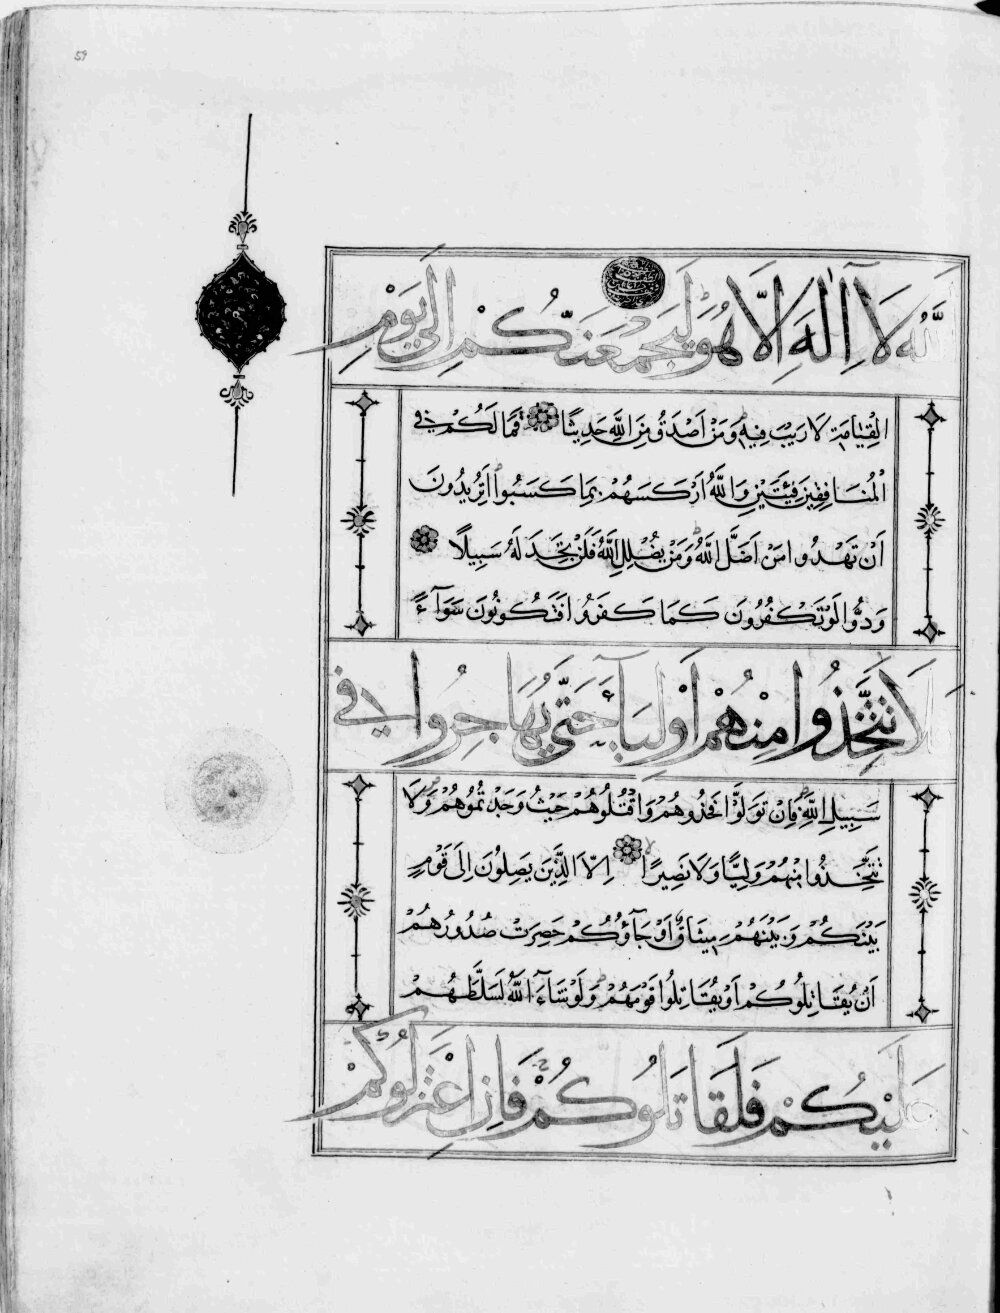 59
اللَّهُ لَا إِلَٰهَ إِلَّا هُوَ لَيَجْمَعَنَّكُمْ إِلَى يَوْمِ
الْقِيَامَةِ لَا رَيْبَ فِيهِ وَمَنْ أَصْدَقُ مِنَ اللَّهِ حَدِيثًا فَمَا لَكُمْ فِي
الْمُنَافِقِينَ فِئَتَيْنِ وَاللَّهُ أَرْكَسَهُمْ بِمَا كَسَبُوا أَتُرِيدُونَ
أَنْ تَهْدُوا مَنْ أَضَلَّ اللَّهُ وَمَنْ يُضْلِلِ اللَّهُ فَلَنْ تَجِدَ لَهُ سَبِيلًا
وَدُّوا لَوْ تَكْفُرُونَ كَمَا كَفَرُوا فَتَكُونُونَ سَوَآءً
فَلَا تَتَّخِذُوا مِنْهُمْ أَوْلِيَآءَ حَتَّى يُهَاجِرُوا فِي
سَبِيلِ اللَّهِ فَإِنْ تَوَلَّوْا فَخُذُوهُمْ وَاقْتُلُوهُمْ حَيْثُ وَجَدْتُمُوهُمْ وَلَا
تَتَّخِذُوا مِنْهُمْ وَلِيًّا وَلَا نَصِيرًا إِلَّا الَّذِينَ يَصِلُونَ إِلَى قَوْمٍ
بَيْنَكُمْ وَبَيْنَهُمْ مِيثَاقٌ أَوْ جَآؤُكُمْ حَصِرَتْ صُدُورُهُمْ
أَنْ يُقَاتِلُوكُمْ أَوْ يُقَاتِلُوا قَوْمَهُمْ وَلَوْ شَآءَ اللَّهُ لَسَلَّطَهُمْ
عَلَيْكُمْ فَلَقَاتَلُوكُمْ فَإِنِ اعْتَزَلُوكُمْ